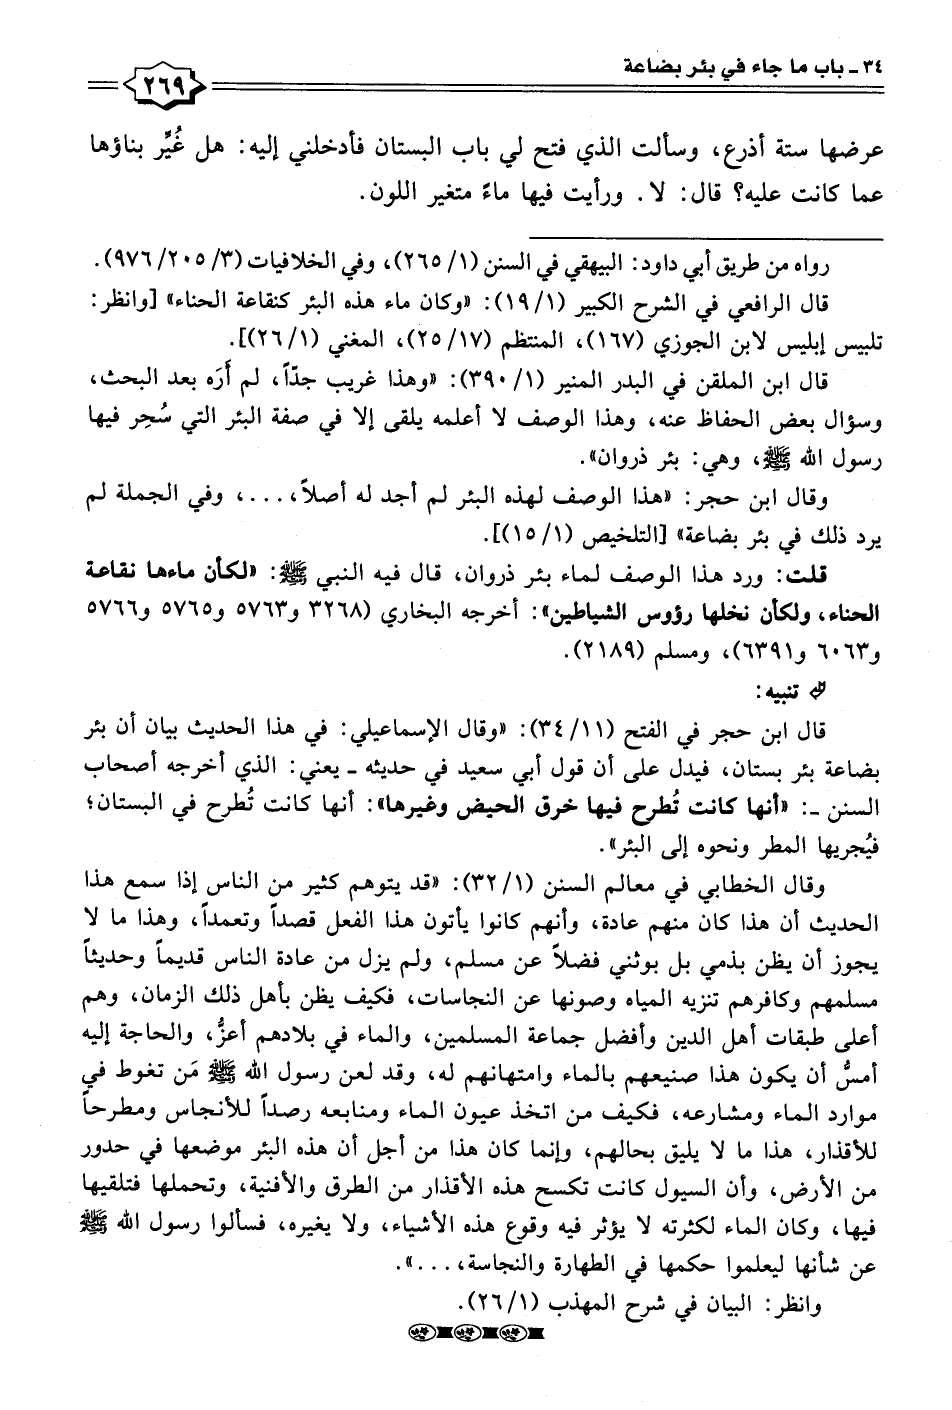 ٣٤ ـ باب ما جاء في بئر بضاعة
٢٦٩
عرضها ستة أذرع، وسألت الذي فتح لي باب البستان فأدخلني إليه: هل غُيِّر بناؤها
عما كانت عليه؟ قال: لا. ورأيت فيها ماءً متغير اللون.
رواه من طريق أبي داود: البيهقي في السنن (١/ ٢٦٥)، وفي الخلافيات (٣/ ٢٠٥/ ٩٧٦).
قال الرافعي في الشرح الكبير (١/ ١٩): «وكان ماء هذه البئر كنقاعة الحناء» [وانظر:
تلبيس إبليس لابن الجوزي (١٦٧)، المنتظم (١٧/ ٢٥)، المغني (١/ ٢٦)].
قال ابن الملقن في البدر المنير (١/ ٣٩٠): «وهذا غريب جدّاً، لم أَرَه بعد البحث،
وسؤال بعض الحفاظ عنه، وهذا الوصف لا أعلمه يلقى إلا في صفة البئر التي سُحِر فيها
رسول الله ﷺ، وهي: بئر ذروان».
وقال ابن حجر: «هذا الوصف لهذه البئر لم أجد له أصلاً، . . .، وفي الجملة لم
يرد ذلك في بئر بضاعة» [التلخيص (١/ ١٥)].
قلت: ورد هذا الوصف لماء بئر ذروان، قال فيه النبي ﷺ: «لكأن ماءها نقاعة
الحناء، ولكأن نخلها رؤوس الشياطين»: أخرجه البخاري (٣٢٦٨ و٥٧٦٣ و٥٧٦٥ و٥٧٦٦
و٦٠٦٣ و٦٣٩١)، ومسلم (٢١٨٩).
تنبيه:
قال ابن حجر في الفتح (١١/ ٣٤): «وقال الإسماعيلي: في هذا الحديث بيان أن بئر
بضاعة بئر بستان، فيدل على أن قول أبي سعيد في حديثه ـ يعني: الذي أخرجه أصحاب
السنن ـ: «أنها كانت تُطرح فيها خرق الحيض وغيرها»: أنها كانت تُطرح في البستان؛
فيُجريها المطر ونحوه إلى البئر».
وقال الخطابي في معالم السنن (١/ ٣٢): «قد يتوهم كثير من الناس إذا سمع هذا
الحديث أن هذا كان منهم عادة، وأنهم كانوا يأتون هذا الفعل قصداً وتعمداً، وهذا ما لا
يجوز أن يظن بذمي بل بوثني فضلاً عن مسلم، ولم يزل من عادة الناس قديماً وحديثاً
مسلمهم وكافرهم تنزيه المياه وصونها عن النجاسات، فكيف يظن بأهل ذلك الزمان، وهم
أعلى طبقات أهل الدين وأفضل جماعة المسلمين، والماء في بلادهم أعزُّ، والحاجة إليه
أمسُّ أن يكون هذا صنيعهم بالماء وامتهانهم له، وقد لعن رسول الله ﷺ مَن تغوط في
موارد الماء ومشارعه، فكيف من اتخذ عيون الماء ومنابعه رصداً للأنجاس ومطرحاً
للأقذار، هذا ما لا يليق بحالهم، وإنما كان هذا من أجل أن هذه البئر موضعها في حدور
من الأرض، وأن السيول كانت تكسح هذه الأقذار من الطرق والأفنية، وتحملها فتلقيها
فيها، وكان الماء لكثرته لا يؤثر فيه وقوع هذه الأشياء، ولا يغيره، فسألوا رسول الله ﷺ
عن شأنها ليعلموا حكمها في الطهارة والنجاسة، . . .».
وانظر: البيان في شرح المهذب (١/ ٢٦).